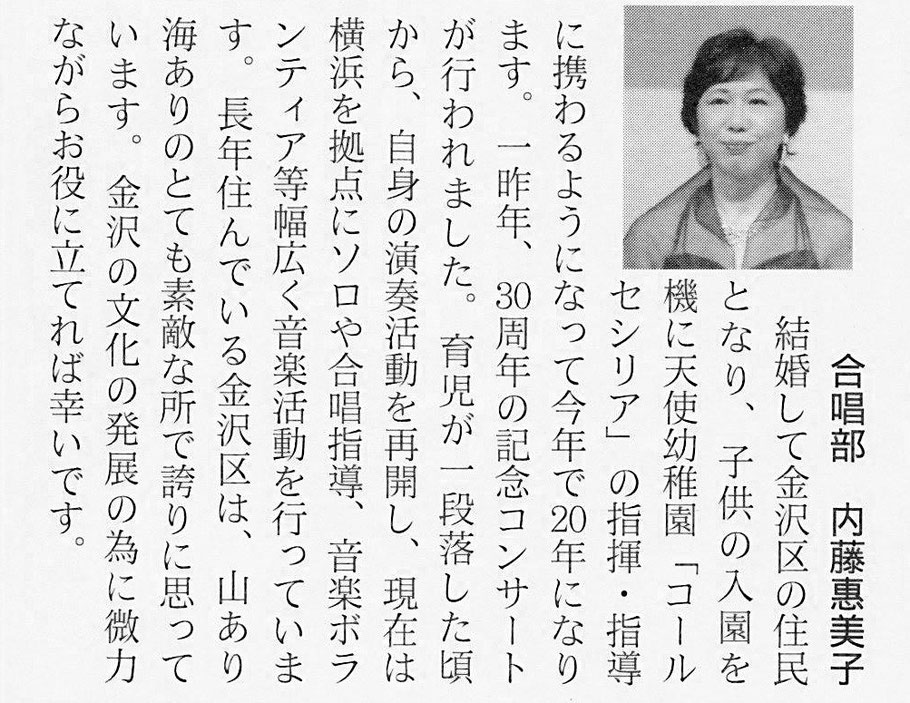 合唱部　内藤惠美子
結婚して金沢区の住民
となり、子供の入園を
機に天使幼稚園「コール
セシリア」の指揮・指導
に携わるようになって今年で20年になり
ます。一昨年、30周年の記念コンサート
が行われました。育児が一段落した頃
から、自身の演奏活動を再開し、現在は
横浜を拠点にソロや合唱指導、音楽ボラ
ンティア等幅広く音楽活動を行っていま
す。長年住んでいる金沢区は、山あり
海ありのとても素敵な所で誇りに思って
います。金沢の文化の発展の為に微力
ながらお役に立てれば幸いです。